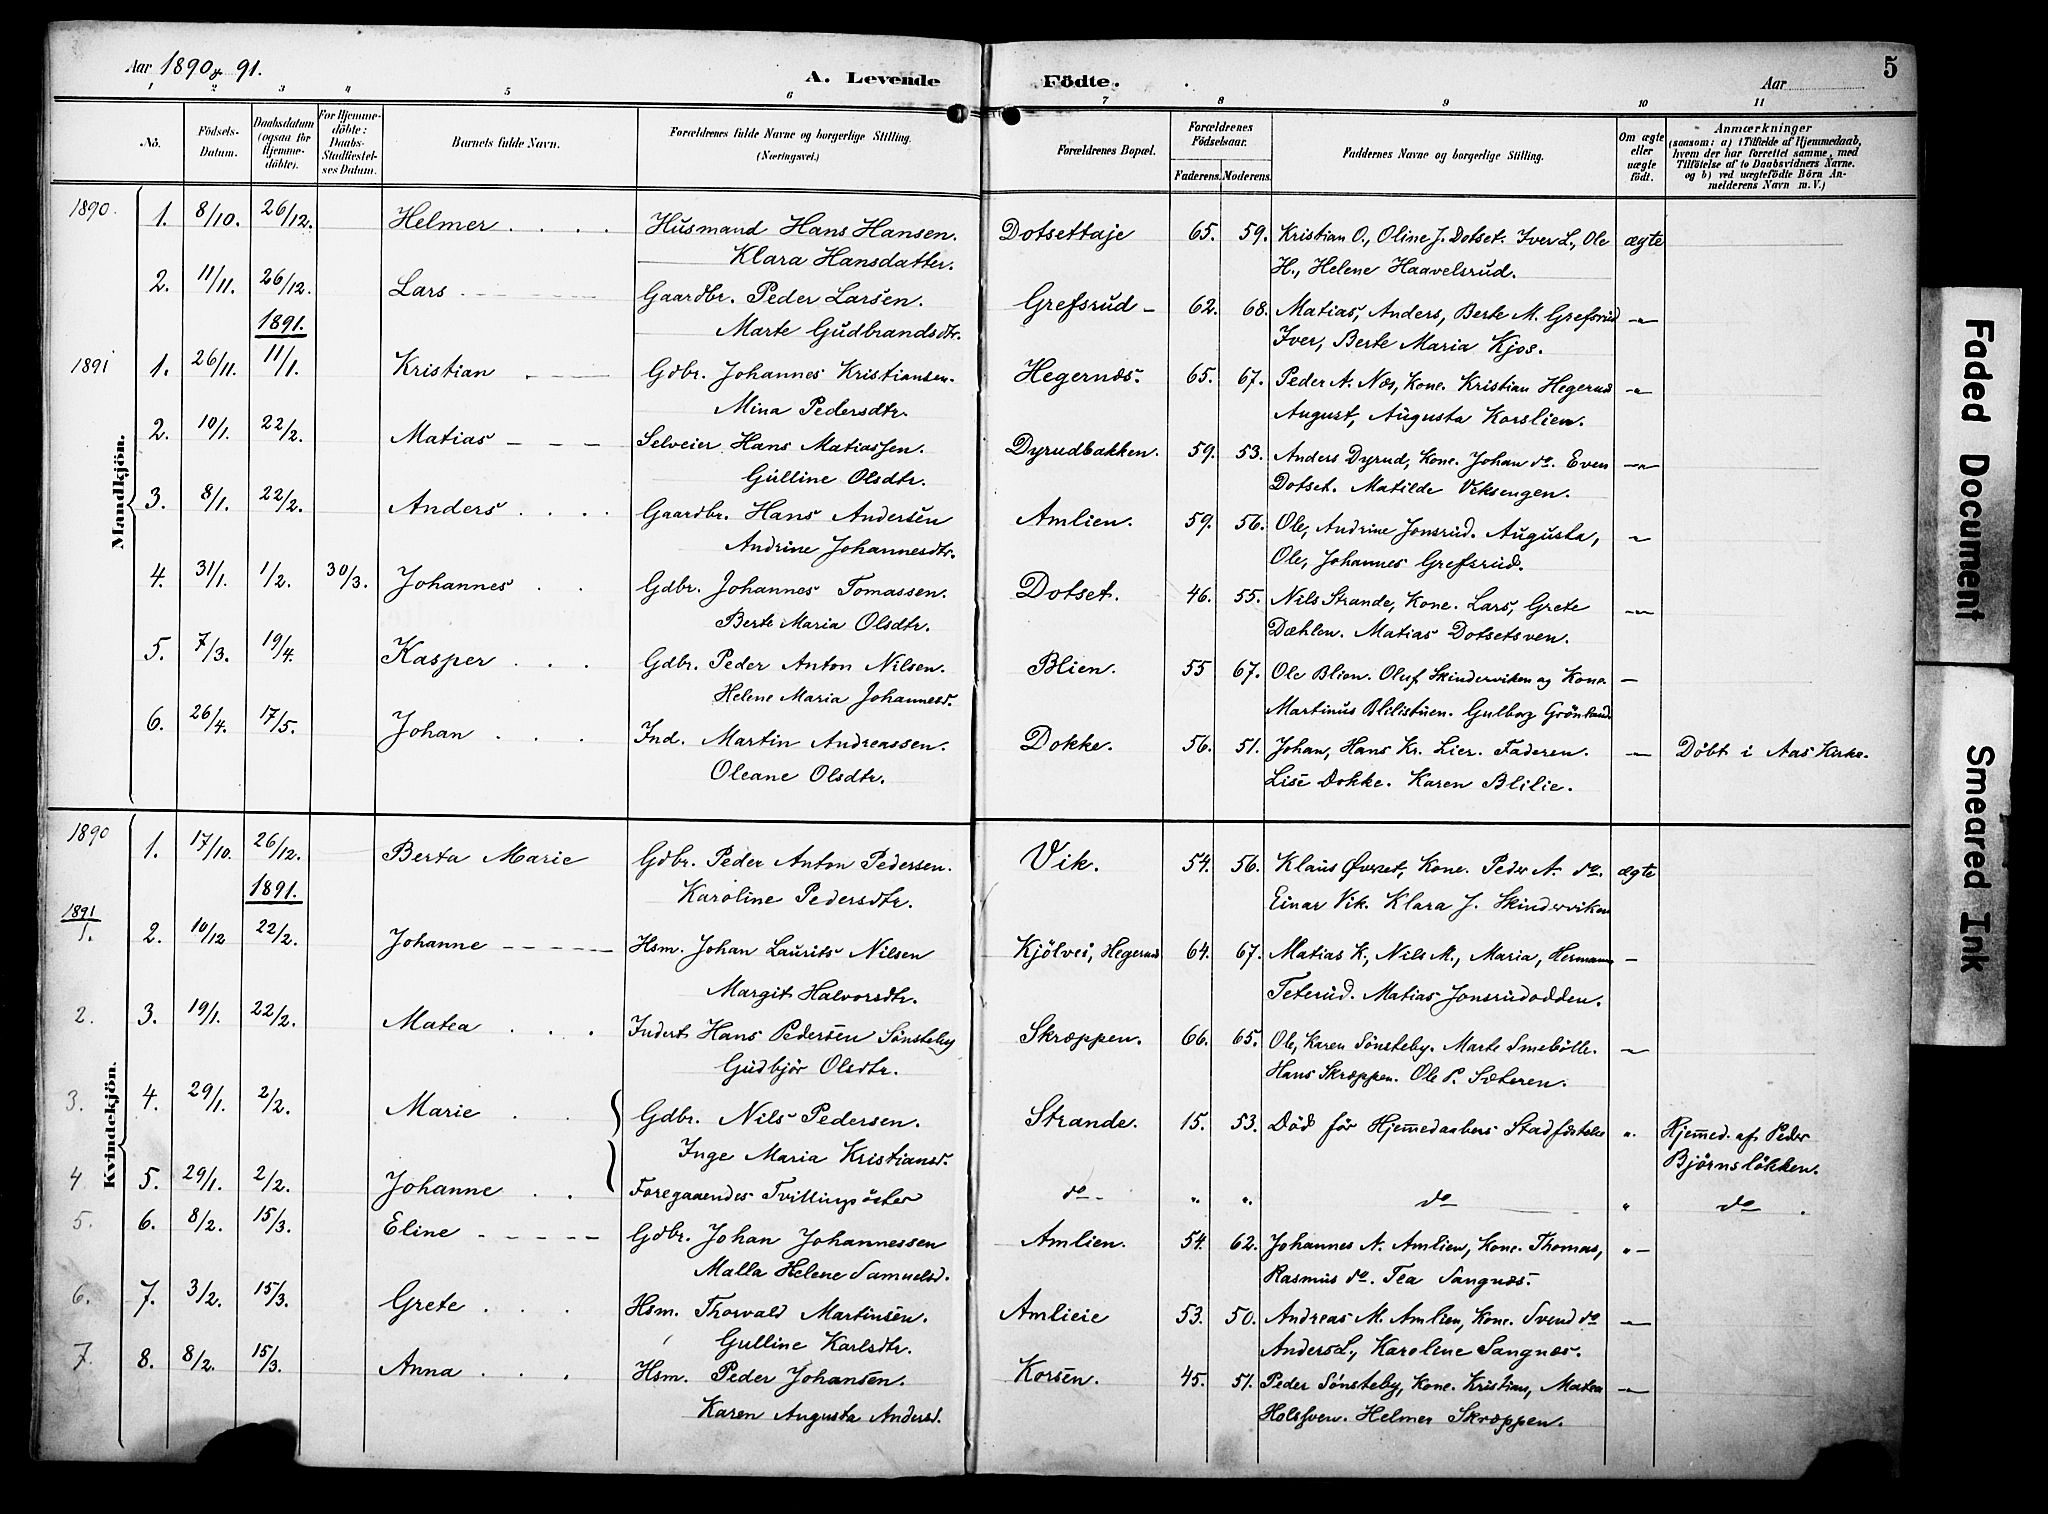 Aar 1890 & 91.
A. Levende Födte.
Aar
5
1 2 3 4 5 6 7 8 9 10 11
No.
Födsels-Datum.
Daabsdatum (ogsaa for Hjemmedöbte).
For Hjemmedöbte: Daabs-Stadfestelses Datum.
Barnets fulde Navn.
Forældrenes fulde Navne og borgerlige Stilling. (Næringsvei.)
Forældrenes Bopæl.
Forældrenes Födselsaar.
Faderens. Moderens.
Faddernes Navne og borgerlige Stilling.
Om ægte eller uægte födt.
Anmærkninger
(saasom: a) i Tilfælde af Hjemmedaab, hvem der har forrettet samme, med Tilföielse af to Daabsvidners Navne. og b) ved uægtefödte Börn Anmelderens Navn m. V.)
Mandkjön.
1890. 1. 8/10. 26/12. Helmer . . . . Husmand Hans Hansen. Dotsettaje 65. 59. Kristian O., Oline J. Dotset. Iver L., Ole ægte
Klara Hansdatter. H., Helene Haavelsrud.
2. 11/11. 26/12. Lars Gaardbr. Peder Larsen. Grefsrud – 62. 68. Matias, Anders, Berte M. Grefsrud –„–
1891. Marte Gudbrandsdtr. Iver, Berte Maria Kjos.
1891 1. 26/11. 11/1. Kristian Gdbr. Johannes Kristiansen. Hegernæs. 65. 67. Peder A. Næs, Kone. Kristian Hegerud –„–
Mina Pedersdtr. August, Augusta Korslien.
2. 10/1. 22/2. Matias – – – Selveier Hans Matiassen. Dyrudbakken. 59. 53. Anders Dyrud, Kone. Johan do. Even –„–
Gulline Olsdtr. Dotset. Matilde Viksengen.
3. 8/1. 22/2. Anders . . . . Gaardbr. Hans Andersen Amlien. 59. 56. Ole, Andrine Jonsrud. Augusta, –„–
Andrine Johannesdtr. Ole, Johannes Grefsrud.
4. 31/1. 1/2. 30/3. Johannes . . Gdbr. Johannes Tomassen. Dotset. 46. 55. Nils Strande, Kone. Lars, Grete –„–
Berte Maria Olsdtr. Dæhlen. Matias Dotsetsven.
5. 7/3. 19/4. Kasper . . . Gdbr. Peder Anton Nilsen. Blien. 55 67. Ole Blien. Oluf Skinderviken og Kone. –
Helene Maria Johannesd. Martinus Blilistuen. Gulborg Grönland.
6. 26/4. 17/5. Johan . . . Ind. Martin Andreassen. Dokke. 56. 51. Johan, Hans Kr. Lier. Faderen. – Döbt i Aas Kirke.
Oleane Olsdtr. Lise Dokke. Karen Blilie.
Kvindekjön.
1890 1. 17/10. 26/12. Berta Marie Gdbr. Peder Anton Pedersen. Vik. 54. 56. Klaus Øverset, Kone. Peder A. do. ægte
1891. Karoline Pedersdtr. Einar Vik. Klara J. Skinderviken
1891 1. 2. 10/12 22/2. Johanne – – – – Hsm. Johan Laurits Nilsen Kjölvei, Hegerud 64. 67. Matias K., Nils M., Maria, Hermann –
Margit Halvorsdtr. Teterud. Matias Jonsrudodden.
2. 3. 19/1. 22/2. Matea . . . Inderst Hans Pedersen Sönsteby Skræppen. 66. 65. Ole, Karen Sönsteby. Marte Smebölle. –„–
Gudbjör Olsdtr. Hans Skræppen. Ole P. Sæteren.
3. 4. 29/1. 2/2. Marie . . Gdbr. Nils Pedersen. Strande. 15. 53. Död för Hjemmedaabens Stadfæstelse „ Hjemmed. af Peder
Inge Maria Kristiansd. Björnslökken.
4 5. 29/1. 2/2. Johanne . . Foregaaendes Tvillingsöster do „ „ do „ do
5. 6. 8/2. 15/3. Eline – – – – – Gdbr. Johan Johannessen Amlien. 54. 62. Johannes A. Amlien, Kone. Thomas, „–
Malla Helene Samuelsd. Rasmus do. Tea Sangnæs.
6. 7. 3/2. 15/3. Grete . . . Hsm. Thorvald Martinsen. Amlieie 53. 50. Andreas M. Amlien, Kone. Svend do –„–
Gulline Karlsdtr. Anders L., Karolene Sangnæs.
7. 8. 8/2. 15/3. Anna . . . Hsm. Peder Johansen. Korsen. 45. 51. Peder Sönsteby, Kone. Kristian, Matea –„–
Karen Augusta Andersd. Holsfven. Helmer Skræppen.
Faded Document
Smeared Ink